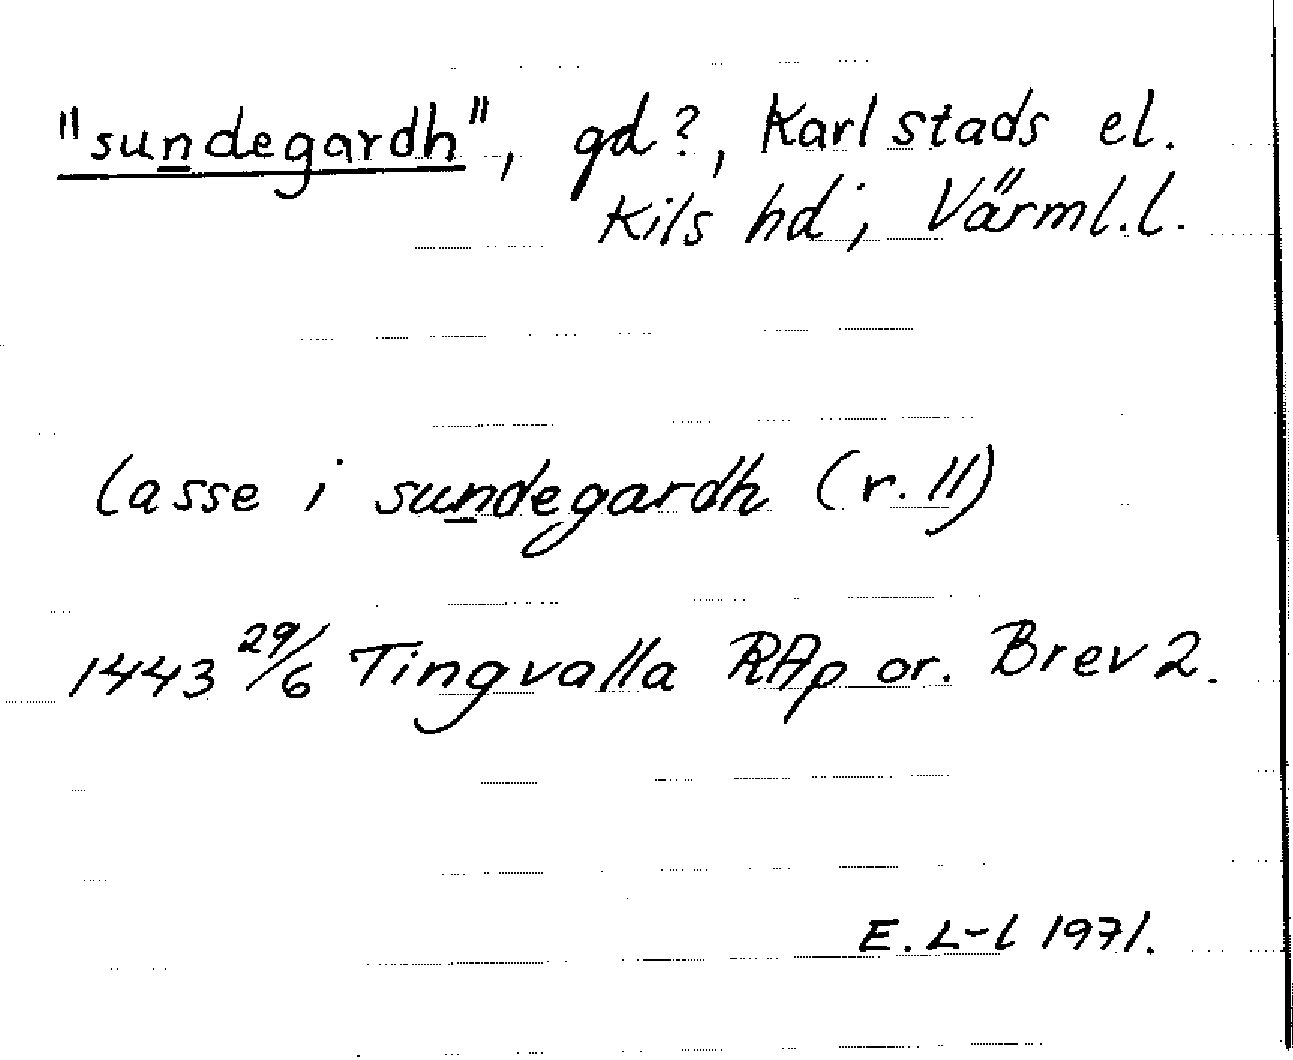 "sundegardh", gd?, Karlstads el.
Kils hd; Värml.l.
lasse i sundegardh (r. 11)
1443 29/6 Tingvalla RAp or. Brev 2.
E. L-l 1971.